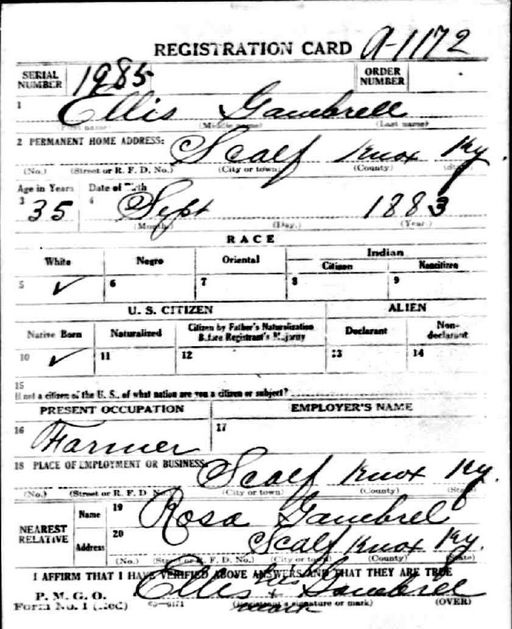 REGISTRATION CARD A-1172
SERIAL NUMBER 1985 ORDER NUMBER
1 Ellis Gambrell
(First name) (Middle name) (Last name)
2 PERMANENT HOME ADDRESS: Scalf Knox Ky.
(No.) (Street or R. F. D. No.) (City or town) (County) (State)
Age in Years Date of Birth
3 35 4 Sept 1883
(Month.) (Day.) (Year.)
RACE
White Negro Oriental Indian
Citizen Noncitizen
5 ✓ 6 7 8 9
U. S. CITIZEN ALIEN
Native Born Naturalized Citizen by Father's Naturalization Before Registrant's Majority Declarant Non-declarant
10 ✓ 11 12 13 14
15
If not a citizen of the U. S., of what nation are you a citizen or subject?
PRESENT OCCUPATION EMPLOYER'S NAME
16 Farmer 17
18 PLACE OF EMPLOYMENT OR BUSINESS: Scalf Knox Ky.
(No.) (Street or R. F. D. No.) (City or town) (County) (State)
NEAREST RELATIVE Name 19 Rosa Gambrel
Address 20 Scalf Knox Ky.
(No.) (Street or R. F. D. No.) (City or town) (County) (State)
I AFFIRM THAT I HAVE VERIFIED ABOVE ANSWERS AND THAT THEY ARE TRUE
P. M. G. O.
Form No. 1 (Red) Ellis x Gambrel
(Registrant's signature or mark) (OVER)
mark